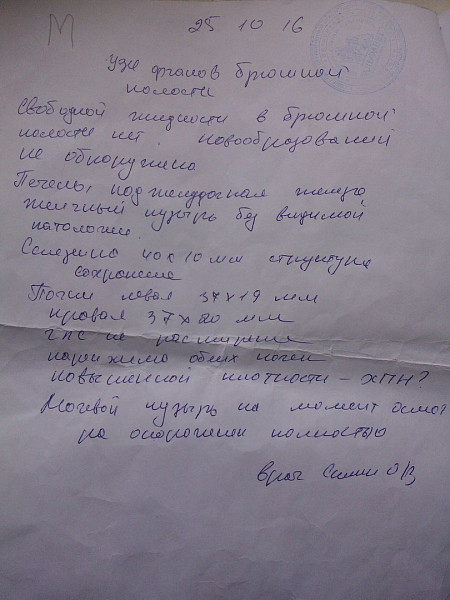 М 25 10 16
УЗИ органов брюшной
полости
Свободной жидкости в брюшной
полости нет. новообразований
не обнаружено
Печень, поджелудочная железа,
желчный пузырь без видимой
патологии.
Селезенка 40х10 мм структура
сохранена
Почки левая 37х19 мм
правая 37х20 мм
ЧЛС не расширена
паренхима обеих почек
повышенной плотности – ХПН?
Мочевой пузырь на момент осмот
ра опорожнен полностью
врач